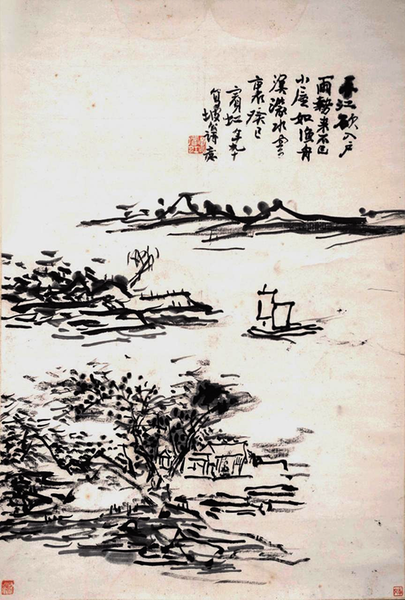 春江欲入戶
雨勢來不已
小屋如漁舟
濛濛水雲
裏癸巳
賓虹年九十
寫坡詩意